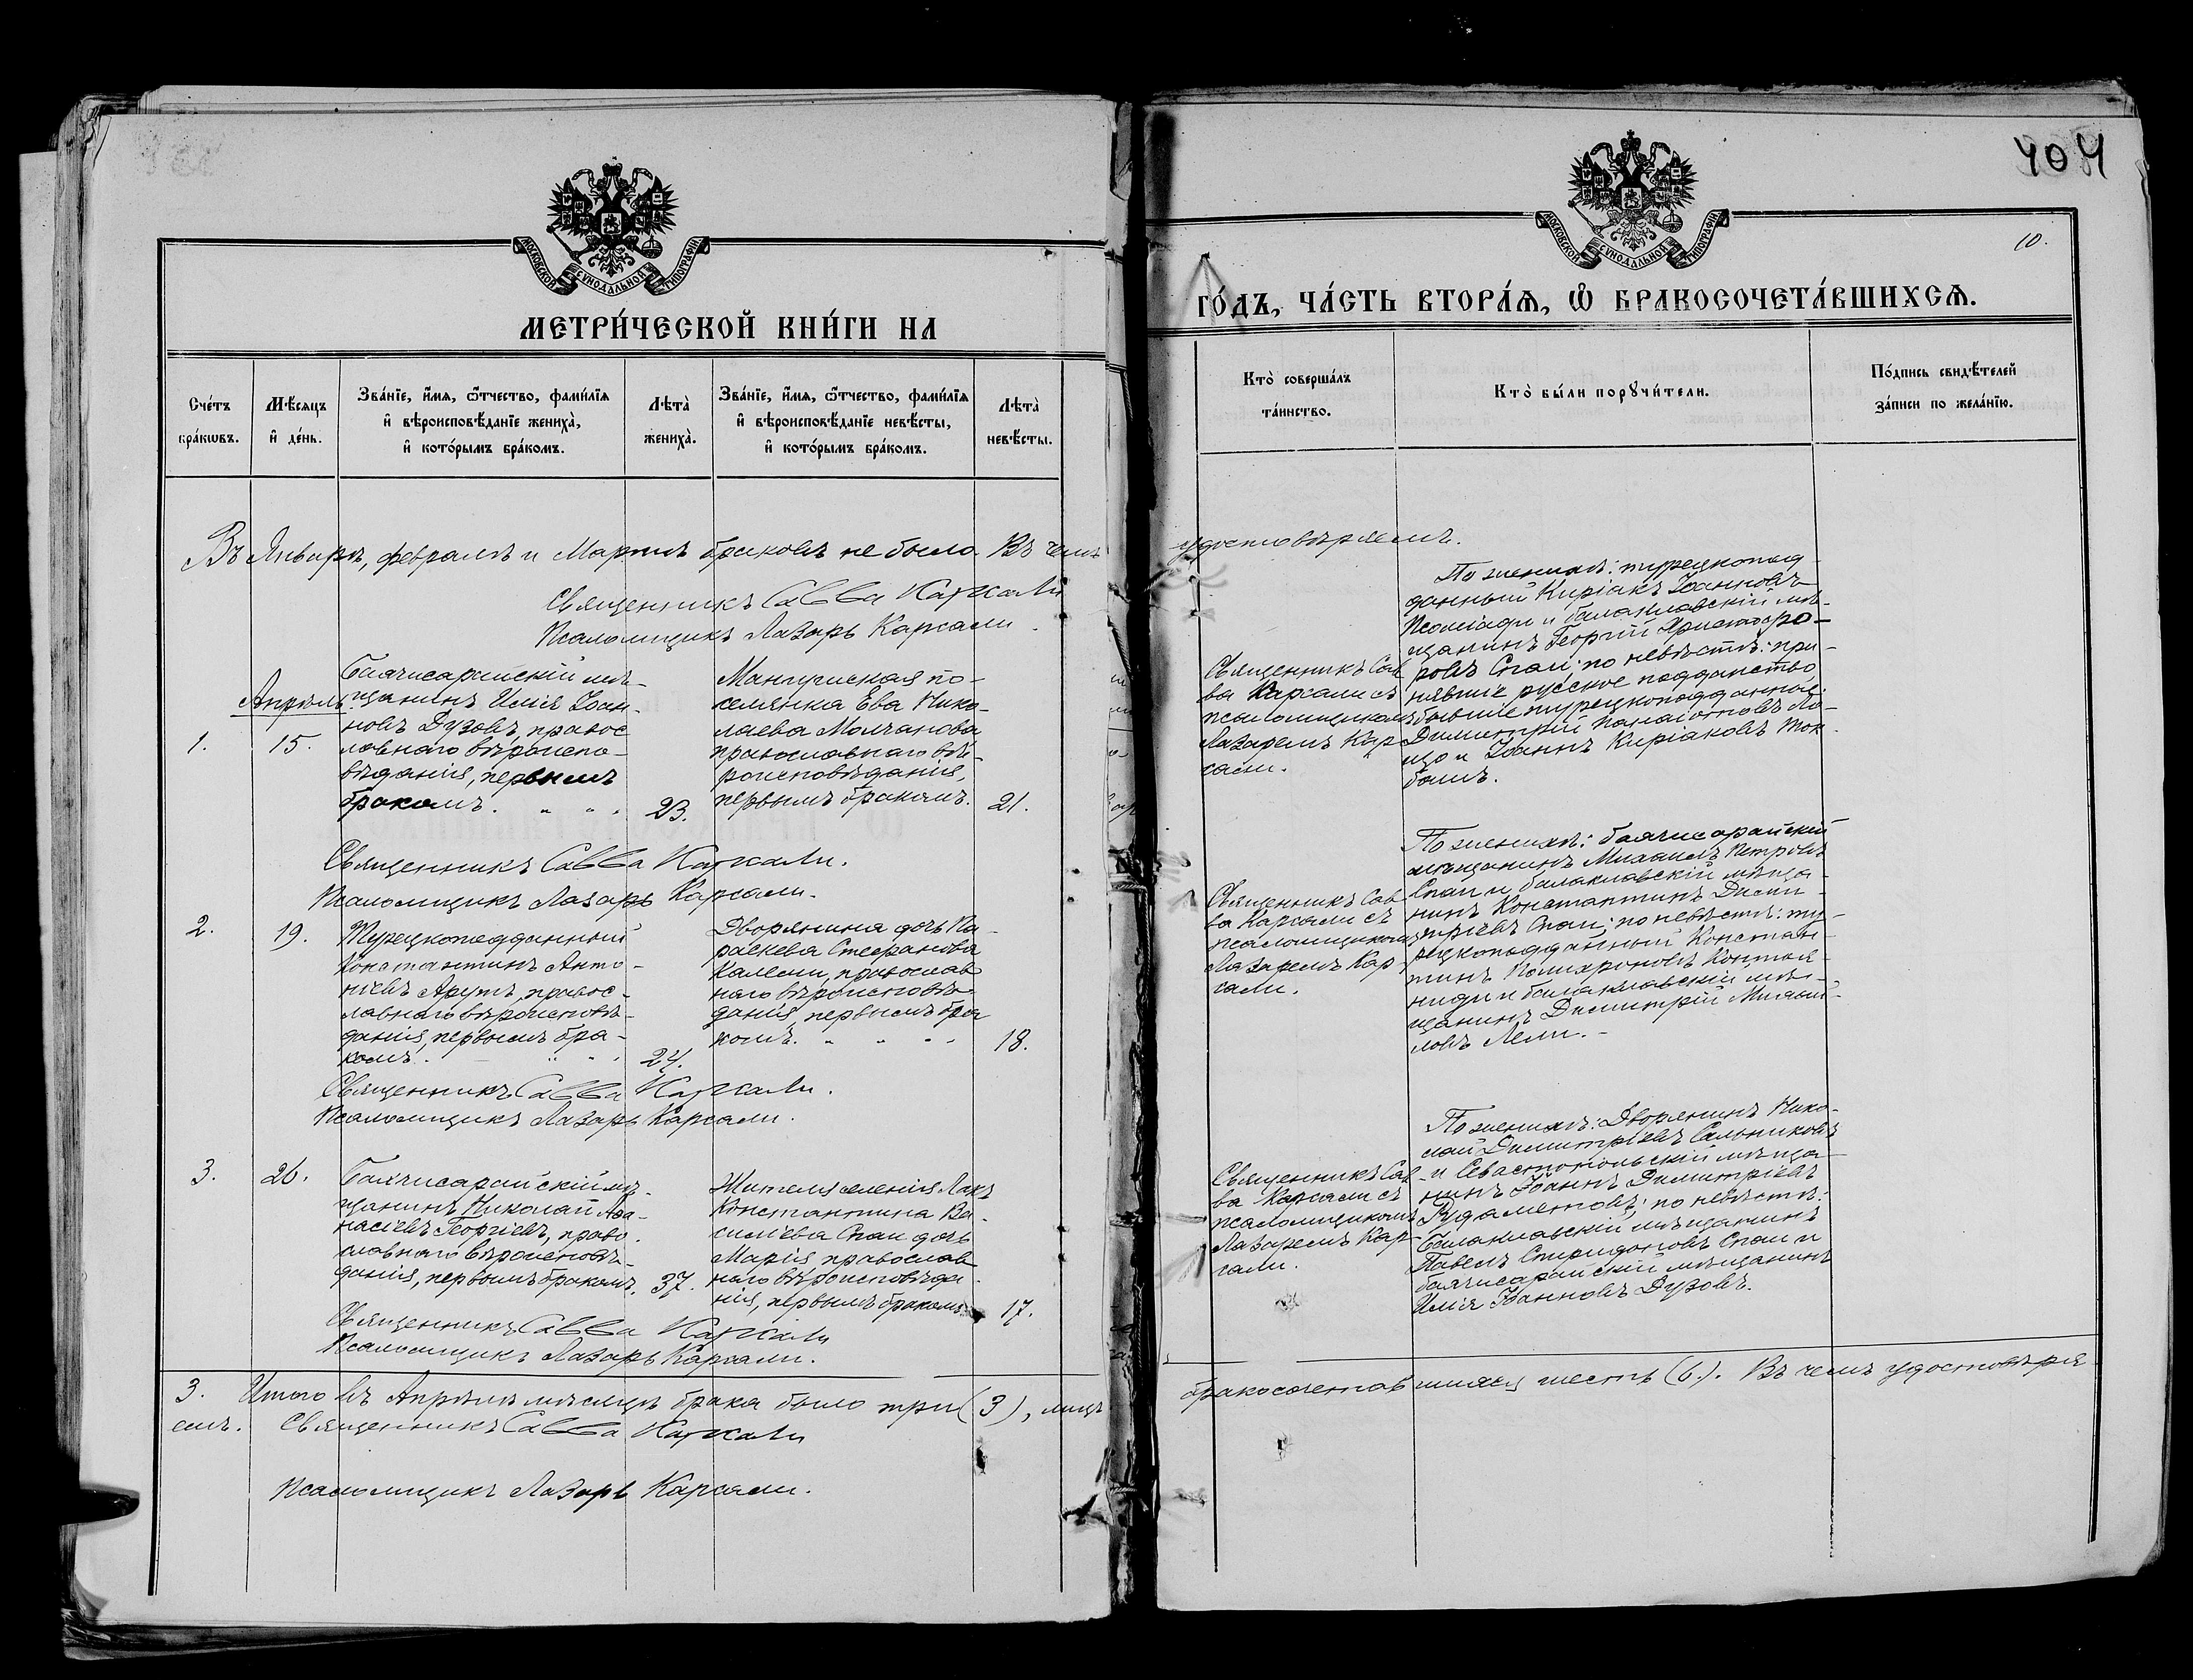 404
10.
МОСКОВСКОЙ СѴНОДАЛЬНОЙ ТИПОГРАФІИ
МЕТРИ́ЧЕСКОЙ КНИ́ГИ НА
Сче́тъ бра́кѡвъ.
Мѣ́сяцъ и҆ де́нь.
Зва́нїе, и҆́мя, ѻ҆́тчество, фами́лїя
и҆ вѣроисповѣ́данїе жениха̀,
и҆ кото́рымъ бра́комъ.
Лѣта̀ жениха̀.
Зва́нїе, и҆́мя, ѻ҆́тчество, фами́лїя
и҆ вѣроисповѣ́данїе невѣ́сты,
и҆ кото́рымъ бра́комъ.
Лѣта̀ невѣ́сты.
Въ Январѣ, февралѣ и Мартѣ браковъ не было. Въ чемъ
Священникъ Савва Каргали
Псаломщикъ Лазарь Каргали.
Апрѣль
1.
15.
Бахчисарайскій мѣ-
щанинъ Илія Іоан-
новъ Дузовъ, правос
лавнаго вѣроиспо-
вѣданія, первымъ
бракомъ.
23.
Мангушская по-
селянка Ева Нико-
лаева Молчанова
православнаго вѣ-
роисповѣданія,
первымъ бракомъ.
21.
Священникъ Савва Каргали.
Псаломщикъ Лазарь Каргали.
2.
19.
Турецкоподданный
Константинъ Анто-
ніевъ Арутъ, правос-
лавнаго вѣроисповѣ-
данія, первымъ бра-
комъ.
24.
Дворянина дочь Па-
раскева Стефанова
Калери, православ
наго вѣроисповѣ-
данія первымъ бра
комъ.
18.
Священникъ Савва Каргали.
Псаломщикъ Лазарь Каргали.
3.
26.
Бахчисарайскій мѣ-
щанинъ Николай Аѳа-
насіевъ Георгіевъ, право-
славнаго вѣроисповѣ-
данія, первымъ бракомъ.
37.
Жителя селенія Лакъ
Константина Ва-
силіева Спаи дочь
Марія, православ
наго вѣроисповѣда-
нія, первымъ бракомъ
17.
Священникъ Савва Каргали
Псаломщикъ Лазарь Каргали.
3. Итого въ Апрѣлѣ мѣсяцѣ брака было три (3), лицъ
емъ. Священникъ Савва Каргали
Псаломщикъ Лазарь Каргали.
МОСКОВСКОЙ СѴНОДАЛЬНОЙ ТИПОГРАФІИ
ГО́ДЪ, ЧА́СТЬ ВТОРА́Ѧ, Ѡ҆ БРАКОСОЧЕТА́ВШИХСѦ.
Кто̀ соверша́лъ
та́инство.
Кто̀ бы́ли порꙋчи́тели.
По́дпись свидѣ́телей
за́писи по жела́нїю.
удостовѣряемъ.
Священникъ Сав
ва Каргали съ
псаломщикомъ
Лазаремъ Кар
гали.
По женихѣ: турецкопод-
данный Киріакъ Іоанновъ
и балаклавскій мѣ-
щанинъ Георгій Христофо-
ровъ Спаи; по невѣстѣ: при-
нявшіе русское подданство
бывшіе турецкоподданные:
Димитрій Панаіотовъ
и Іоаннъ Киріаковъ
Священникъ Сав
ва Каргали съ
псаломщикомъ
Лазаремъ Кар
гали.
По женихѣ: бахчисарайскій
мѣщанинъ Михаилъ Петровъ
Спаи и балаклавскій мѣща-
нинъ Константинъ Дими-
тріевъ Спаи; по невѣстѣ: ту-
рецкоподданный Констан-
тинъ Полихроновъ
и балаклавскій мѣ-
щанинъ Димитрій Михаи-
ловъ
Священникъ Сав
ва Каргали съ
псаломщикомъ
Лазаремъ Кар-
гали.
По женихѣ: Дворянинъ Нико-
лай Димитріевъ Сальниковъ
и Севастопольскій мѣща-
нинъ Іоаннъ Димитріевъ
по невѣстѣ:
Балаклавскій мѣщанинъ
Павелъ Спиридоновъ Спаи и
бахчисарайскій мѣщанинъ
Илія Іоанновъ Дузовъ.
бракосочетавшихся шесть (6). Въ чемъ удостовѣря